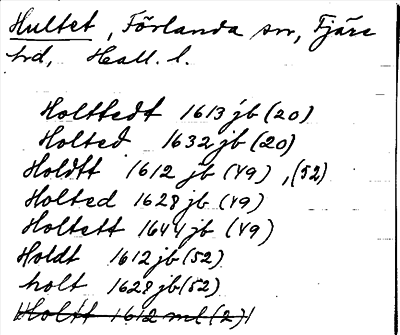 Hultet, Förlanda sn, Fjäre
hd, Hall. l.
Holttedt 1613 jb (20)
Holted 1632 jb (20)
Holdtt 1612 jb (49), (52)
Holted 1628 jb (49)
Holtett 1644 jb (49)
Holdt 1612 jb (52)
holt 1628 jb (52)
Holtt 1612 ml (2)